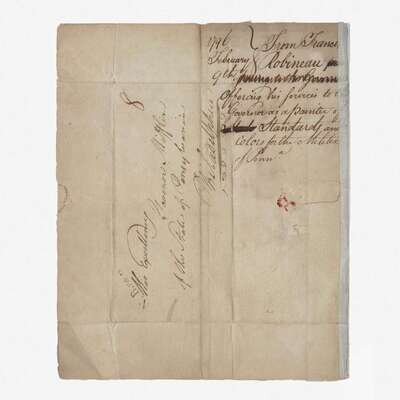 1796
February
9th
From Francis
Robineau
offering his services to
Governor as a painter
Standards and
Colors for the Militia
of Penna
8
His Excellency
Governor Mifflin
of the State of Pennsylvania
Philadelphia